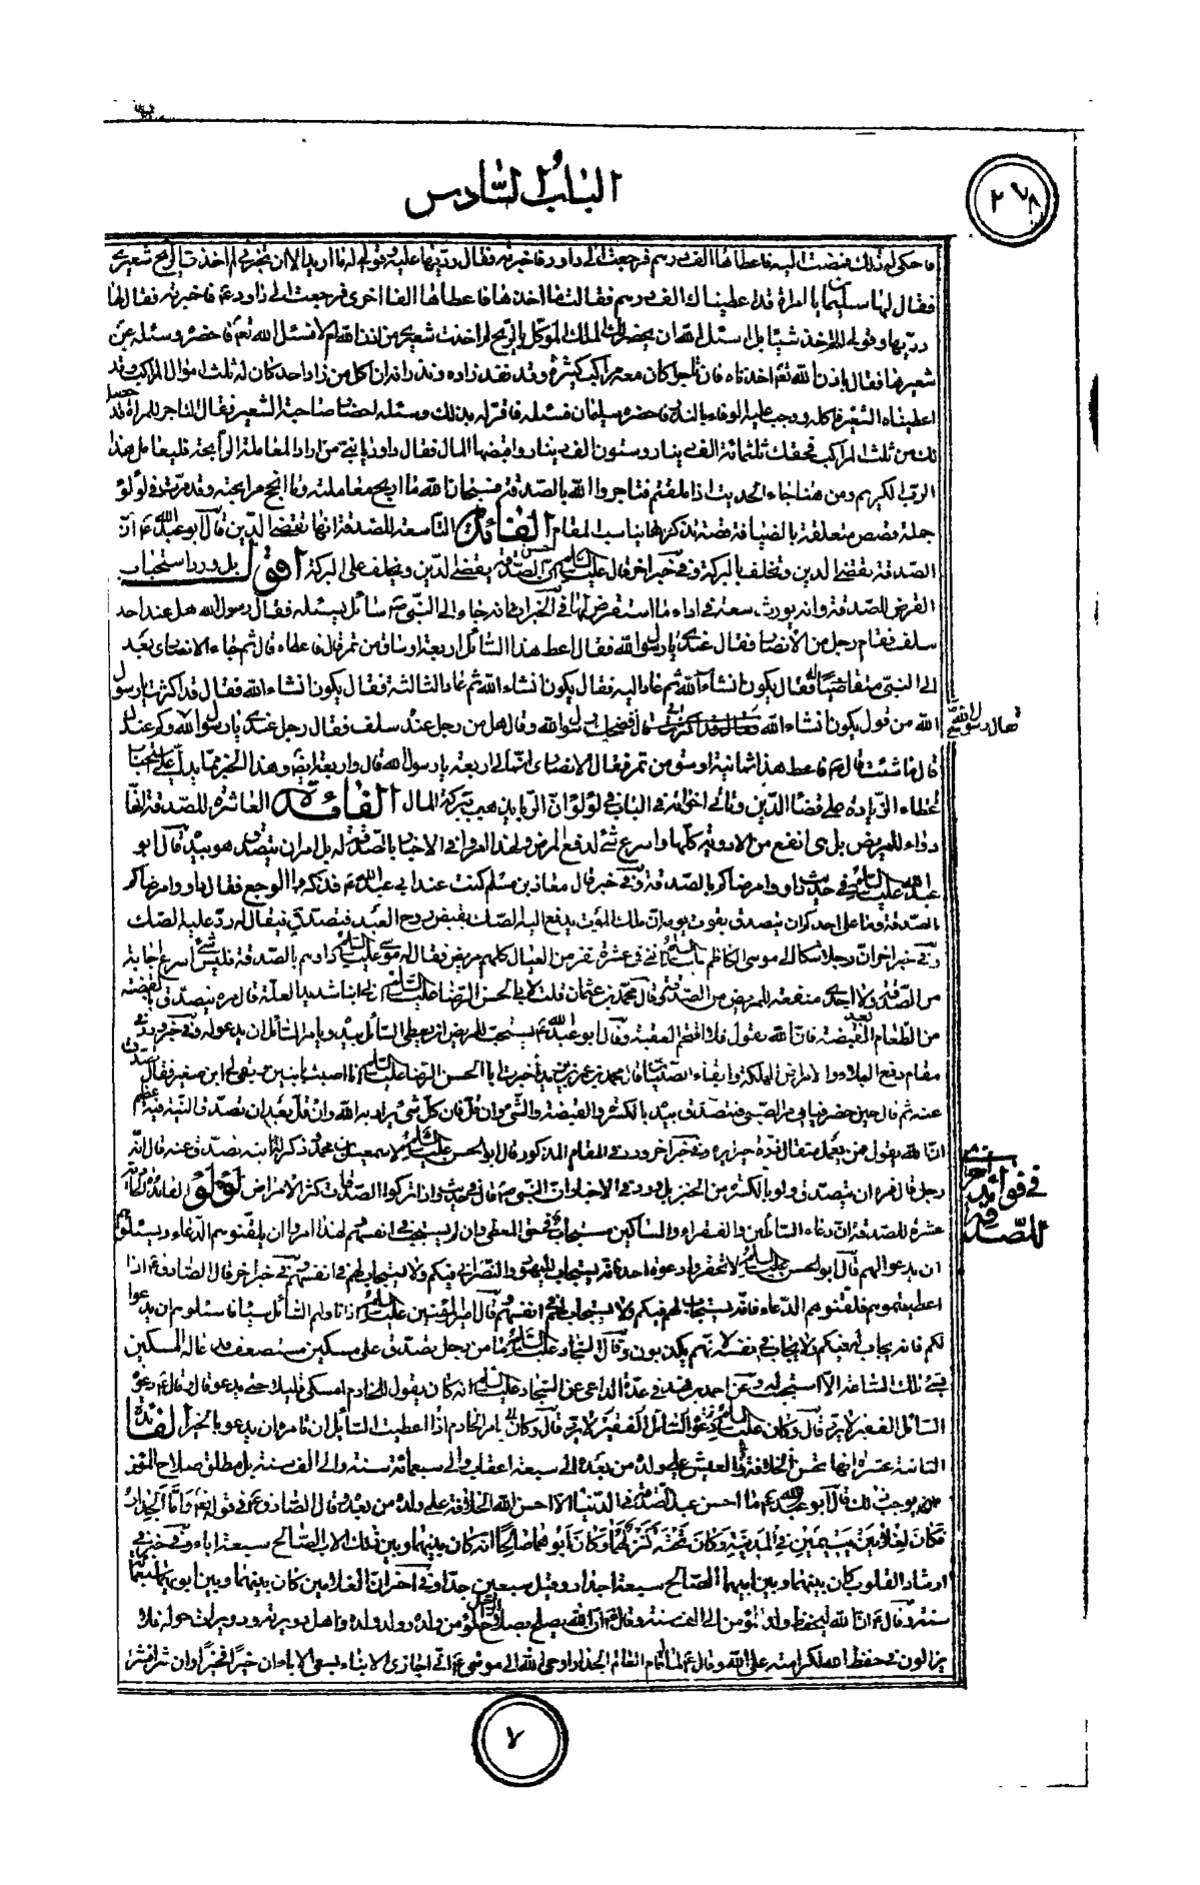 ٢٧٨
الباب السادس
فاحكى له ذلك فمضت اليه فاعطاها الف درهم فرجعت الى داود فاخبرته فقال ردّيها عليه وقولى له ما اريد الا ان تخبرنى لم اخذت الريح شعيرى
فقال لها سليمان يا امراة قد اعطيناك الف درهم فقالت ما اخذها فاعطاها الفا اخرى فرجعت الى داود ع فاخبرته فقال لها
ردّيها وقولى له لا اخذ شيئا بل اسئل الله ان يحضر لك الملك الموكل بالريح لم اخذت شعيرى من اذن الله ام لا فسئل الله تع فاحضره وسئله عن
شعيرها فقال باذن الله تع اخذناه فان تاجرا كان معه مراكب كثيرة وقد نفد زاده ونذر انه ان اكل من زاد احد كان له ثلث اموال المراكب وقد
اعطيناه الشعير فاكله ووجب عليه الوفاء بالنذر فاحضره سليمان فسئله فاقر له بذلك وسئله احضار صاحبة الشعير فقال التاجر للمراة قد حصل
لك من ثلث المراكب فحقك ثلثمائة الف دينار وستون الف دينار واقبضها المال فقال داود يا بنىّ من اراد المعاملة الرابحة فليعامل هذا
الرب الكريم ومن هنا جاء الحديث اذا املقتم فتاجروا الله بالصدقة فسبحان الله ما اربح معاملته وما انجح مرابحته وقد مرّت فى لؤلؤ
جملة قصص متعلقة بالضيافة قصة نذكرها يناسب المقام الفائدة التاسعة للصدقة انها تقضى الدين قال ابو عبد الله ع انّ
الصدقة تقضى الدين وتخلف بالبركة وفى خبر اخر قال عليه السلام حسن الصدقة يقضى الدين ويخلف على البركة اقول بل ورد استحباب
القرض للصدقة وانه يورث سعة فى اداء ما استقرض لها فى الخبر انه جاء الى النبى ص سائل يسئله فقال رسول الله هل عند احد
سلف فقام رجل من الانصار فقال عندى يا رسول الله فقال اعط هذا السائل اربعة اوساق من تمر قال فاعطاه قال ثم جاء الانصارى بعد
الى النبى متقاضيا له فقال يكون انشاء الله ثم عاد اليه فقال يكون انشاء الله ثم عاد الثالثة فقال يكون انشاء الله فقال قد اكثرت يا رسول
الله من قول يكون انشاء الله قال فضحك رسول الله وقال هل من رجل عنده سلف فقال رجل عندى يا رسول الله وكم عندك
قال ما شئت قال ص فاعط هذا ثمانية اوسق من تمر فقال الانصارى انما لى اربعة يا رسول الله قال واربعة ايضا وهذا الخبر مما يدل على استحباب
اعطاء الزيادة على قضاء الدين وتاتى اخرى فى الباب فى لؤلؤ ان الربا يذهب ببركة المال الفائدة العاشرة للصدقة انها
دواء للمريض بل هى انفع من الادوية كلها واسرع شئ لدفع المرض ولهذا امروا فى الاخبار بالصدقة له بل امر ان يتصدق هو بيده قال ابو
عبد الله عليه السلام فى حديث داووا مرضاكم بالصدقة وفى خبر قال معاذ بن مسلم كنت عند ابى عبد الله ع فذكروا الوجع فقال داووا مرضاكم
بالصدقة وما على احدكم ان يتصدق بقوت يومه ان ملك الموت يدفع اليه الصك بقبض روح العبد فيتصدق فيقال له رد عليه الصك
وفى خبر اخر ان رجلا شكا الى موسى الكاظم عليه السلام اننى فى عشرة نفر من العيال كلهم مريض فقال له موسى عليه السلام داوهم بالصدقة فليس شئ اسرع اجابة
من الصدقة ولا اجدى منفعة للمريض من الصدقة وقال محمد بن عثمان قلت لابى الحسن الرضا عليه السلام ان لى ابنا شديد العلة قال مره يتصدق بالقبضة
من الطعام بعد القبضة فان الله يقول فلا اقتحم العقبة وقال ابو عبد الله ع يستحب للمريض ان يعطى السائل بيده ويامر السائل ان يدعو له وفى خبر ورد فى
مقام دفع البلاء والامراض المهلكة وابقاء الصبيان قال محمد بن عمر بن يزيد اخبرت ابا الحسن الرضا عليه السلام انى اصبت بابنين وبقى لى ابن صغير فقال تصدق
عنه ثم قال حين حضر قيامى مر الصبى فيتصدق بيده بالكسرة والقبضة والشئ وان قل فان كل شئ يراد به الله وان قل بعد ان تصدق النية فيه عظيم
ان الله يقول من يعمل مثقال ذرة خيرا يره وفى خبر اخر ورد فى المقام المذكور قال ابو الحسن عليه السلام لاسمعيل بن محمد وذكر له ان ابنه تصدق عنه قال انه
رجل قال فمره ان يتصدق ولو بالكسرة من الخبز بل ورد فى الاخبار ان النبى ص قال فى حديث واذا تركوا الصدقات كثر الامراض لؤلؤ الفائدة الحادية
عشرة للصدقة ان دعاء السائلين والفقراء والمساكين مستجاب فى حق المعطى وان لم يستجب فى انفسهم لهذا امروا ان يلقنوهم الدعاء ويسئلوهم
ان يدعوا لهم قال ابو الحسن عليه السلام لا تحقروا دعوة احد فانه قد يستجاب لليهود والنصرانى فيكم ولا يستجاب لهم فى انفسهم وفى خبر اخر قال الصادق ع اذا
اعطيتموهم فلقنوهم الدعاء فانه يستجاب لهم فيكم ولا يستجاب لهم فى انفسهم قال امير المؤمنين عليه السلام اذا ناولتم السائل شيئا فاسئلوه ان يدعوا
لكم فانه يجاب له فيكم ولا يجاب فى نفسه لانهم يكذبون وقال السجاد عليه السلام ما من رجل تصدق على مسكين مستضعف فدعا له المسكين
بشئ تلك الساعة الا استجيب له وعن احمد بن فهد فى عدة الداعى عن السجاد عليه السلام انه كان يقول للخادم امسكى قليلا حتى يدعو قال وقال ع دعوة
السائل الفقير لا ترد قال وكان عليه السلام دعوة السائل الفقير لا ترد قال وكان ع يامر الخادم اذا اعطيت السائل ان تامره ان يدعو بالخير الفائدة
الثانية عشرة انها تحسن الخلافة والعيش على ولده من بعده الى سبعة اعقاب والى سبعمائة سنة والى الف سنة بل مطلق صلاح المؤمن
يوجب ذلك قال ابو عبد الله ع ما احسن عبد الصدقة فى الدنيا الا احسن الله الخلافة على ولده من بعده وقال الصادق ع فى قوله تع وامّا الجدار
فكان لغلامين يتيمين فى المدينة وكان تحته كنز لهما وكان ابوهما صالحا انه كان بينهما وبين ذلك الاب الصالح سبعة اباء وفى خبر فى
ارشاد القلوب كان بينهما وبين ابيهما الصالح سبعة اجداد وقيل سبعين جدا وفى اخر ان الغلامين كان بينهما وبين ابويهما سبعمائة
سنة وقال ع ان الله ليحفظ ولد المؤمن الى الف سنة وقال ع ان الله يصلح بصلاح الرجل المؤمن ولده وولد ولده واهل دويرته ودويرات حوله فلا
يزالون فى حفظ الله لكرامته على الله وقال ع لما اقام العالم الجدار اوحى الله الى موسى ع انى اجازى الابناء بسعى الاباء ان خيرا فخيرا وان شرا فشرا
فقال رسول الله
فى فوائد اخرى
للصدقة
٧